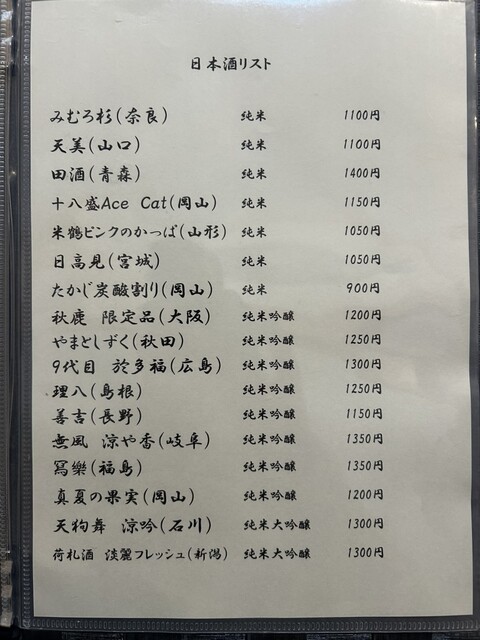 日本酒リスト
みむろ杉(奈良) 純米 1100円
天美(山口) 純米 1100円
田酒(青森) 純米 1400円
十八盛Ace Cat(岡山) 純米 1150円
米鶴ピンクのかっぱ(山形) 純米 1050円
日高見(宮城) 純米 1050円
たかじ炭酸割り(岡山) 純米 900円
秋鹿 限定品(大阪) 純米吟醸 1200円
やまとしずく(秋田) 純米吟醸 1250円
9代目 於多福(広島) 純米吟醸 1300円
理八(島根) 純米吟醸 1250円
善吉(長野) 純米吟醸 1150円
無風 涼や香(岐阜) 純米吟醸 1350円
冩樂(福島) 純米吟醸 1350円
真夏の果実(岡山) 純米吟醸 1200円
天狗舞 涼吟(石川) 純米大吟醸 1300円
荷札酒 淡麗フレッシュ(新潟) 純米大吟醸 1300円